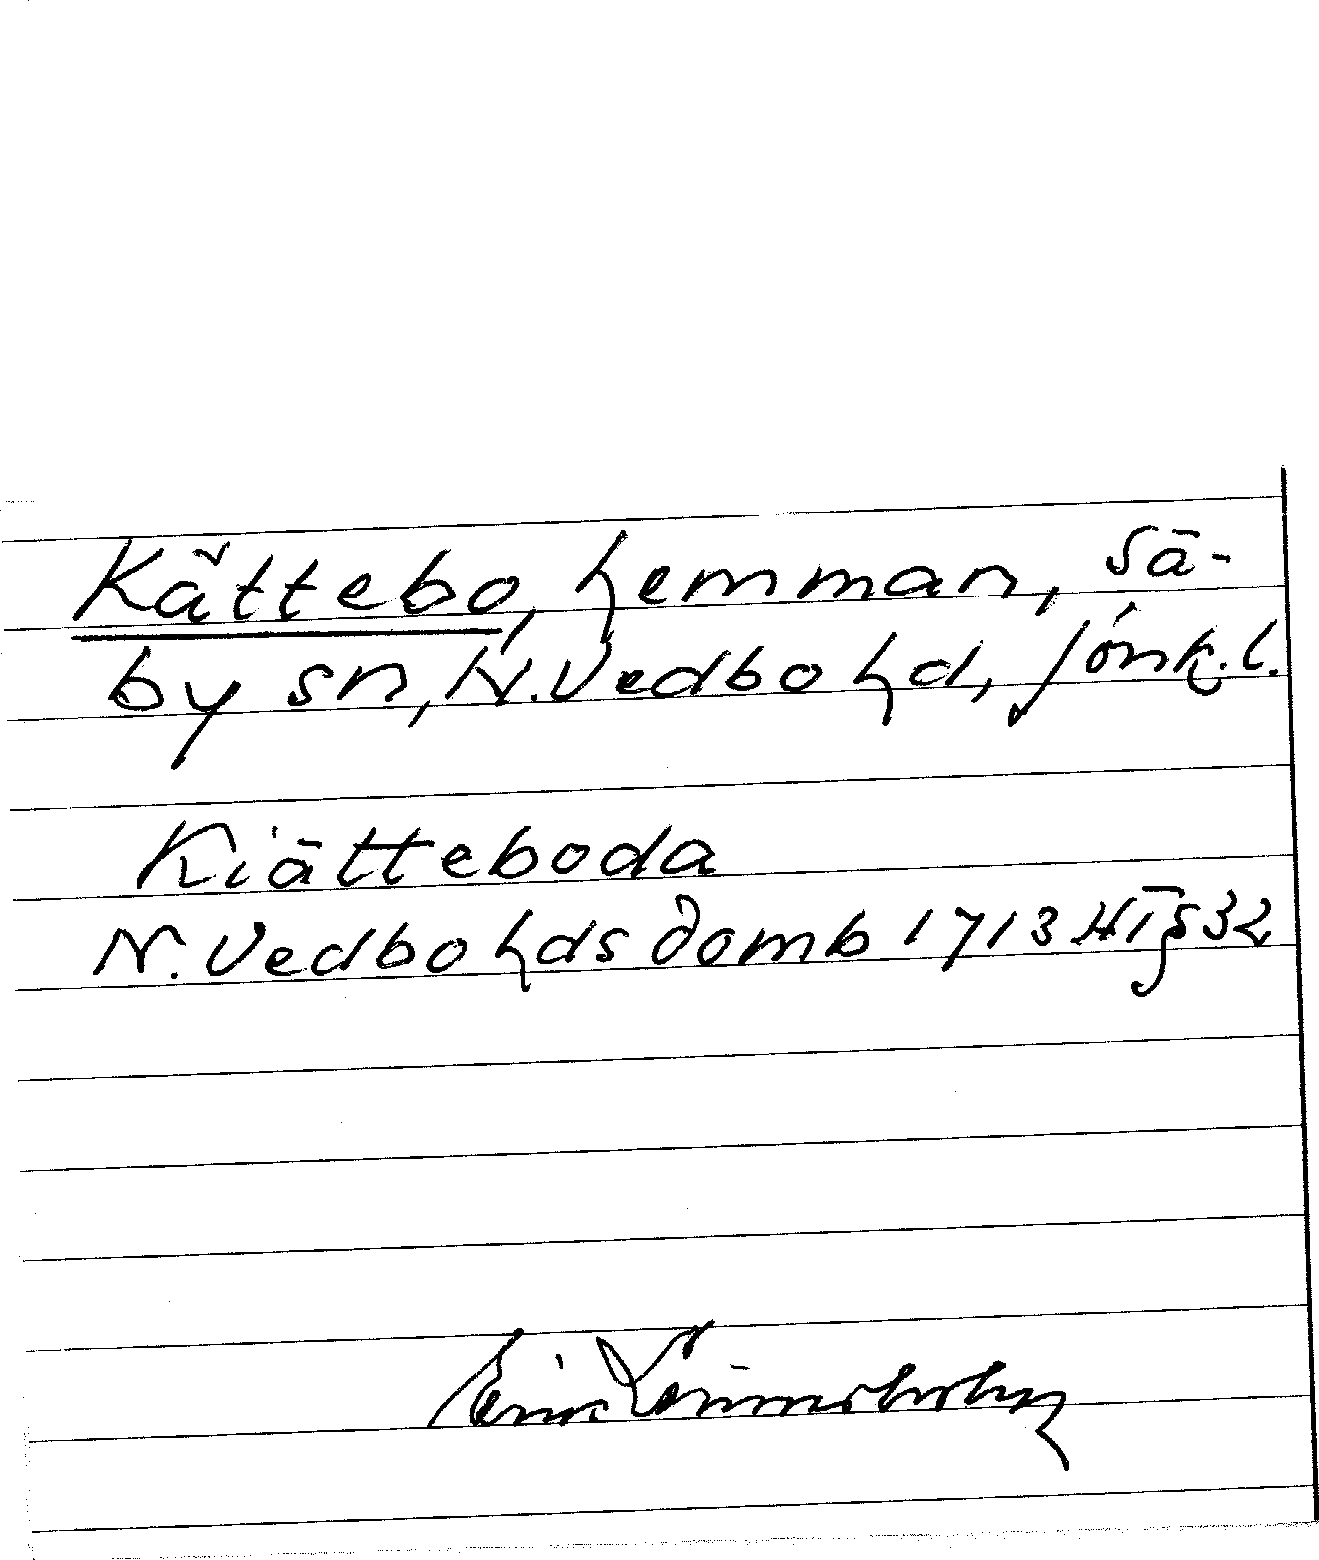 Kättebo, hemman, Sä-
by sn, N. Vedbo hd, Jönk. l.
Kiätteboda
N. Vedbo hds domb 1713 HT § 32
Eric